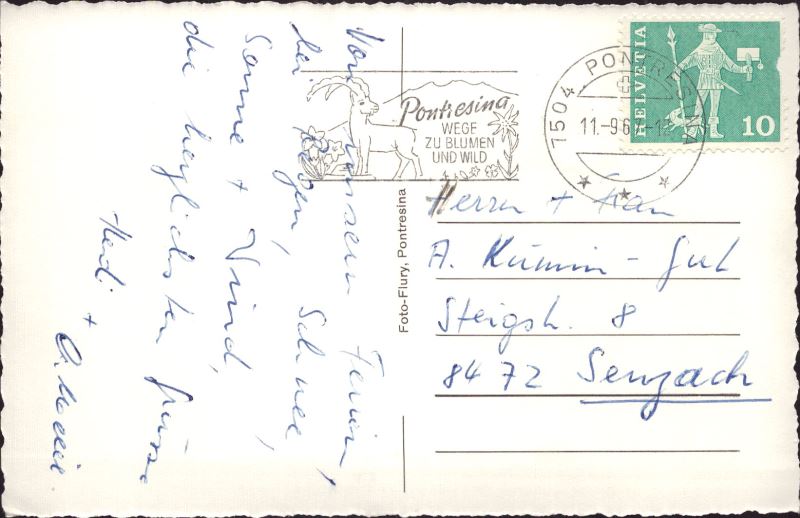 Von unseren Ferien,
bei Regen, Schnee,
Sonne + Wind,
die herzlichsten Grüsse
Heidi +
Pontresina
WEGE
ZU BLUMEN
UND WILD
7504 PONTRESINA
11.-9.6
HELVETIA
10
Foto-Flury, Pontresina
Herrn + Frau
A. Kümin - Gut
Steigstr. 8
8472 Seuzach